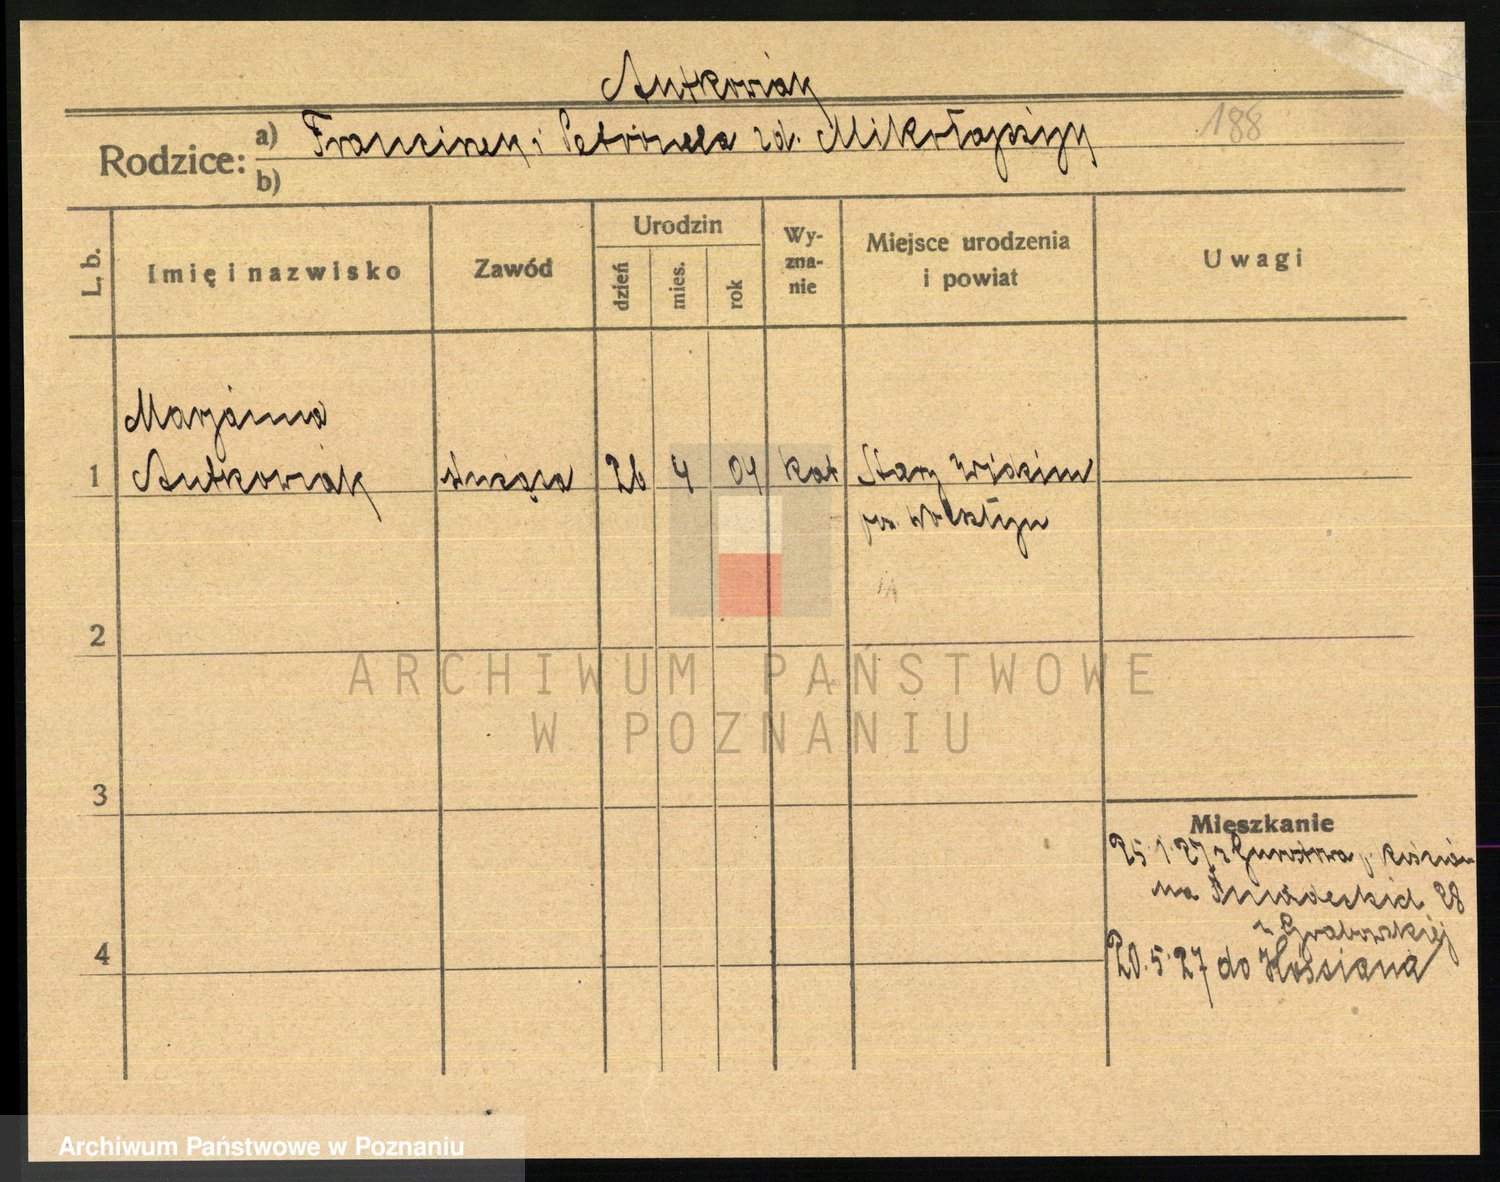 Antkowiak
188
Rodzice: a) Franciszek i Petronela zd. Mikołajczyk
b)
L. b. Imię i nazwisko Zawód Urodzin dzień mies. rok Wy-zna-nie Miejsce urodzenia i powiat Uwagi
Marjanna
1 Antkowiak służąca 26 4 04 kat Stary Widzim
pow. Wolsztyn
2
ARCHIWUM PAŃSTWOWE
W POZNANIU
3
Mieszkanie
25.1.27 z p. Kościan
na Śniadeckich 28
4 z Grabowskiej
20.5.27 do Kościana
Archiwum Państwowe w Poznaniu